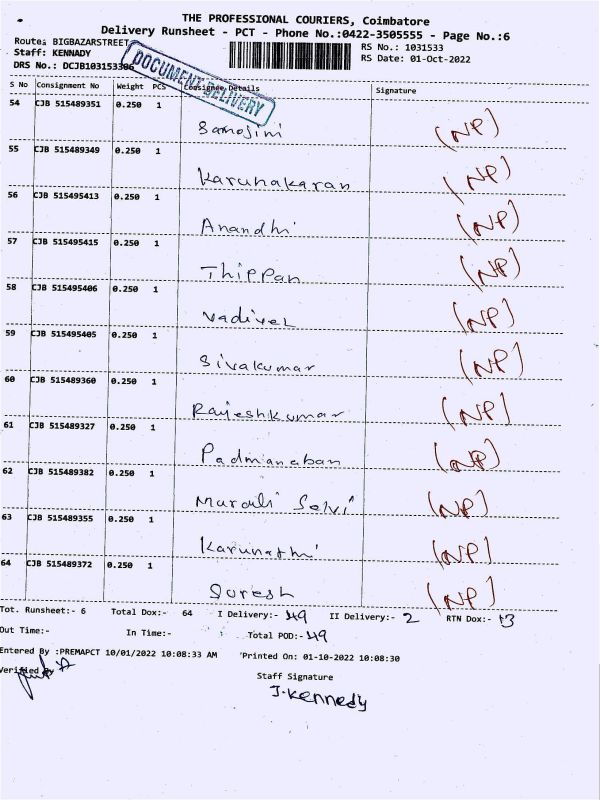 THE PROFESSIONAL COURIERS, Coimbatore
Delivery Runsheet - PCT - Phone No.:0422-3505555 - Page No.:6
Route: BIGBAZARSTREET
RS No.: 1031533
Staff: KENNADY
RS Date: 01-Oct-2022
DRS No.: DCJB103153306
DOCUMENT DELIVERY
S No Consignment No Weight PCS Consignee Details Signature
54 CJB 515489351 0.250 1
Sarojini (NP)
55 CJB 515489349 0.250 1
Karunakaran (NP)
56 CJB 515495413 0.250 1
Anandhi (NP)
57 CJB 515495415 0.250 1
Thippan (NP)
58 CJB 515495406 0.250 1
Vadivel (NP)
59 CJB 515495405 0.250 1
Sivakumar (NP)
60 CJB 515489360 0.250 1
Rajeshkumar (NP)
61 CJB 515489327 0.250 1
Padmanaban (NP)
62 CJB 515489382 0.250 1
Murali Selvi (NP)
63 CJB 515489355 0.250 1
Karunathi (NP)
64 CJB 515489372 0.250 1
Suresh (NP)
Tot. Runsheet:- 6 Total Dox:- 64 I Delivery:- 49 II Delivery:- 2 RTN Dox:- 13
Out Time:- In Time:- Total POD:- 49
Entered By :PREMAPCT 10/01/2022 10:08:33 AM Printed On: 01-10-2022 10:08:30
Verified By
Staff Signature
J. Kennedy